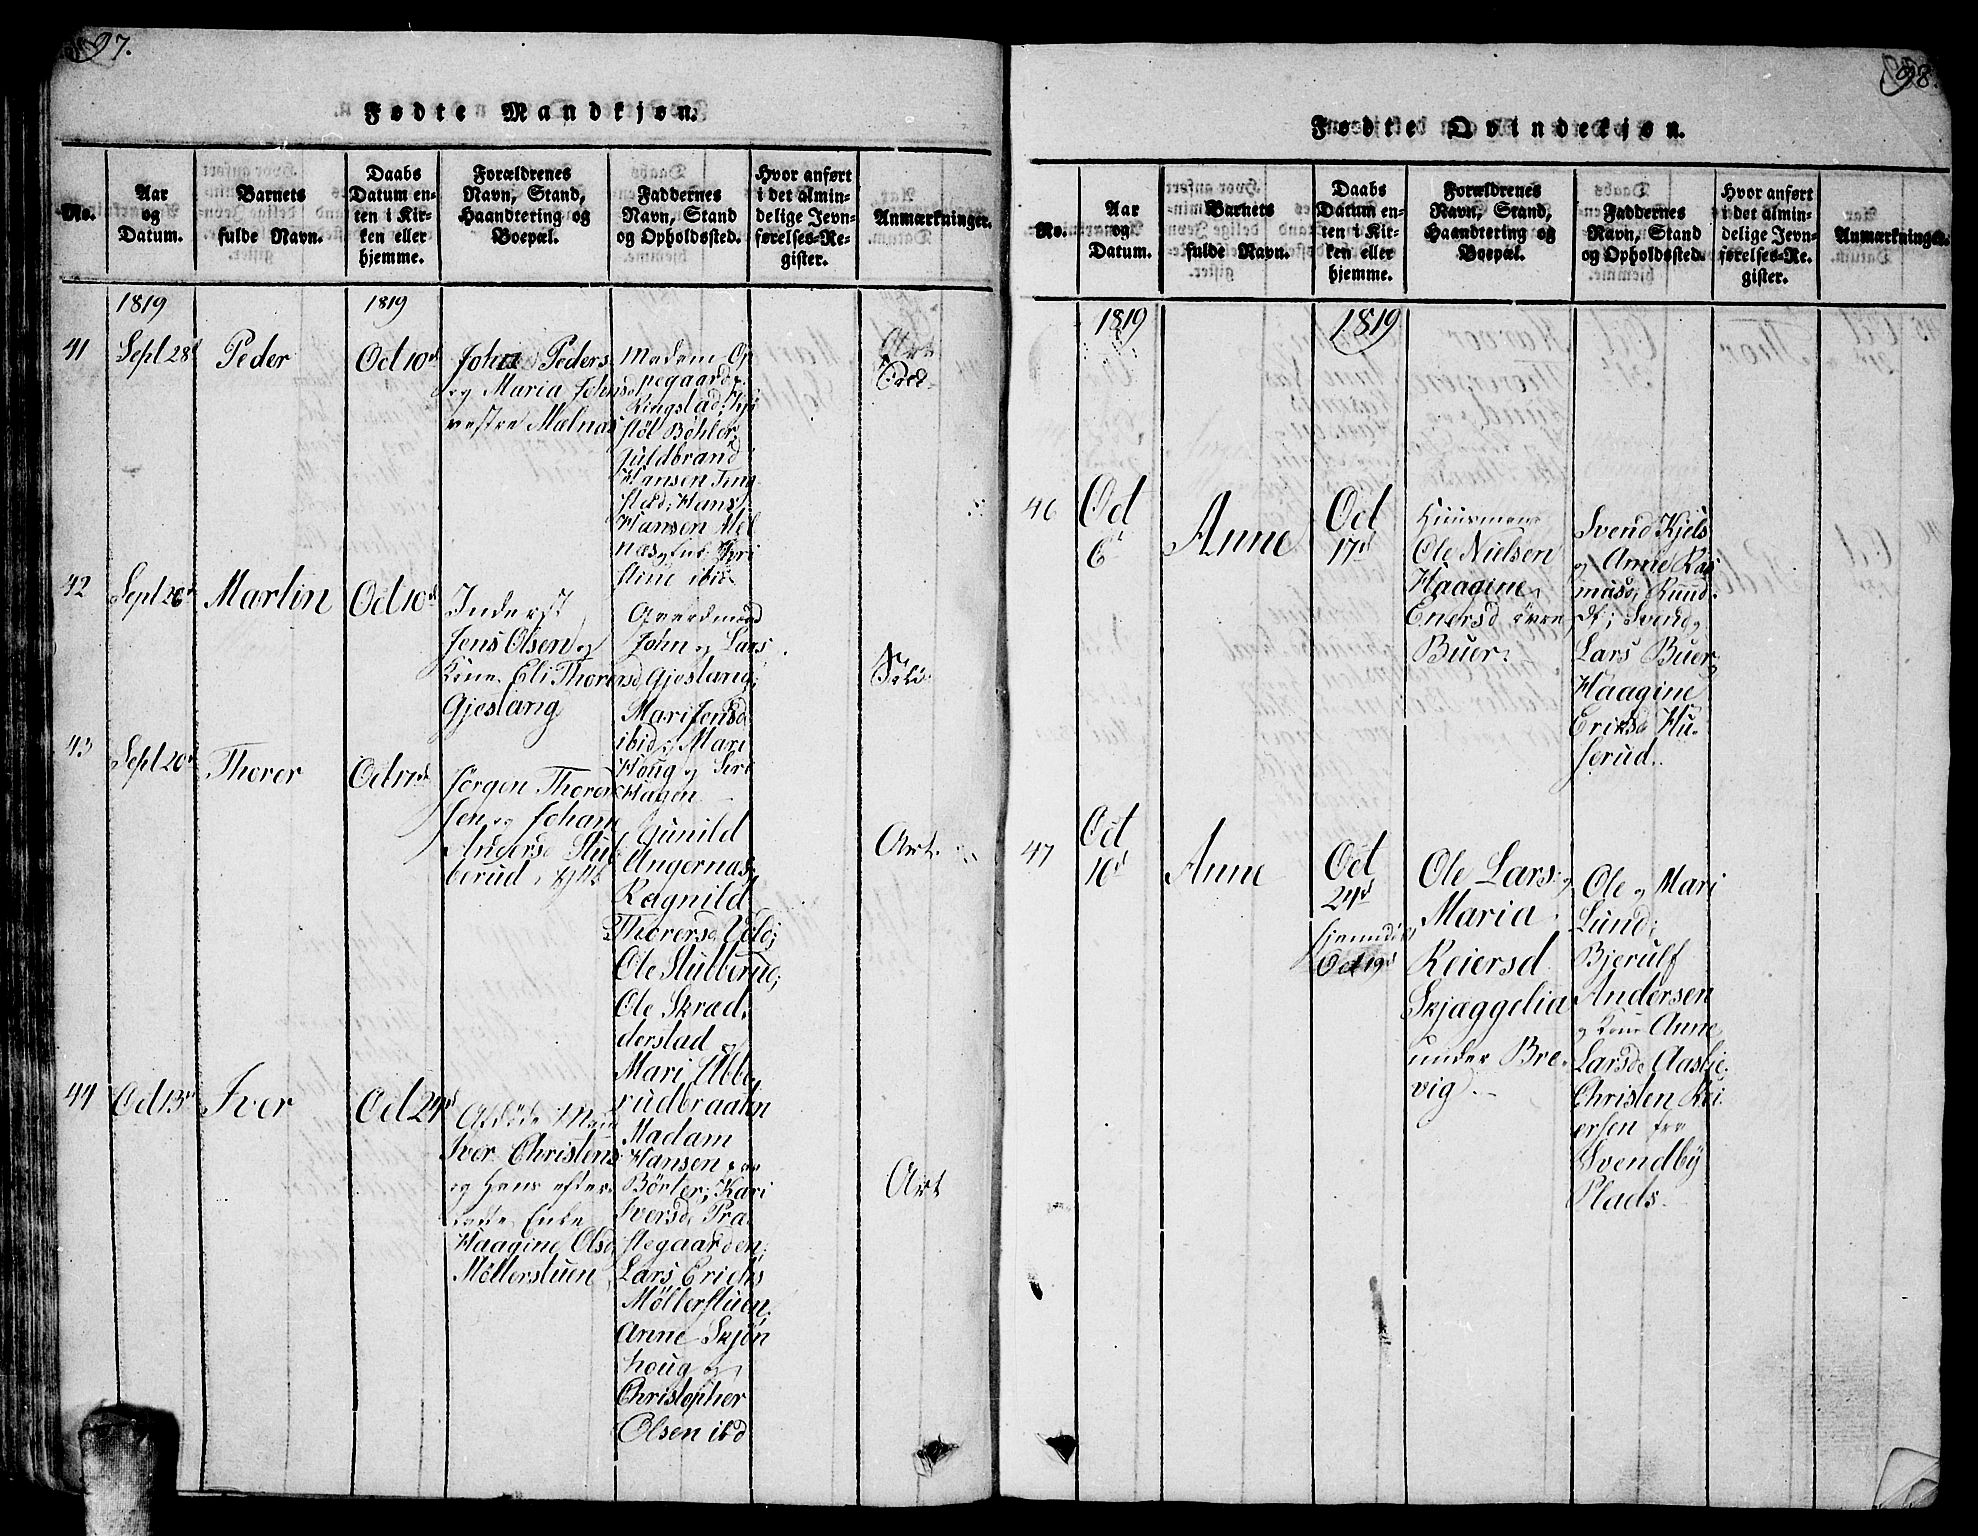 97.
Fødte Mandkjøn.
No.
Aar
og
Datum.
Barnets
fulde Navn.
Daabs
Datum en-
ten i Kir-
ken eller
hjemme.
Forældrenes
Navn, Stand,
Haandtering og
Boepæl.
Faddernes
Navn, Stand
og Opholdssted.
Hvor anført
i det almin-
delige Jevn-
førelses-Re-
gister.
Anmærkninger.
1819
1819
41
Sept 28
Peder
Oct 10d
Peders
og Maria Johnsd
vestre Mælnas
Madam Op
pegaard
Ringstad;
støl Bøhler;
Guldbrand
Hansen Ting
stad; Hans
Hansen Mel
næs og
stine ibid
42
Sept 26d
Martin
Oct 10d
Inderst
Jens Olsen og
Kone Eli Thorersd
Gjeslang
John og Lars
Gjeslang;
Mari Jensd
ibid; Mari
Houg og Siri
Hagen
43
Sept 20d
Thorer
Oct 17d
Jørgen Thorer
sen og Johane
Andersd Stub
berud
Gunild
Ungernas,
Ragnild
Thorersd Vold;
Ole Stubberud;
Ole Skrad
derstad og
Mari Ubbe
rudbraaten
Art.
44
Oct 13d
Iver
Oct 24d
Afdøde Mand
Iver Christens
og Hans efter
Enke
Haagine Olsd
Møllerstuen
Madam
Hansen
Børter; Kari
Iversd Præ
stegaarden;
Lars Erichs
Møllerstuen;
Anne Skjøn
houg og
Christopher
Olsen ibd
Art
98.
Fødte Qvindekjøn.
No.
Aar
og
Datum.
Barnets
fulde Navn.
Daabs
Datum en-
ten i Kir-
ken eller
hjemme.
Forældrenes
Navn, Stand,
Haandtering og
Boepæl.
Faddernes
Navn, Stand
og Opholdssted.
Hvor anført
i det almin-
delige Jevn-
førelses-Re-
gister.
Anmærkninger.
1819
1819
46
Oct
6d
Anne
Oct
17d
Huusmand
Ole Nielsen
Haagine
Enersd øvre
Buer.
Svend Kjels
og Anne Ras
masd Ruud
Svend og
Lars Buer;
Haagine
Eriksd Hu
serud.
47
Oct
16d
Anne
Oct
24d
hjemmdöbt
Oct 19d
Ole Lars og
Maria
Reiersd
Skjæggelia
under Bre
vig.
Ole og Mari
Lund;
Bjerulf
Andersen
og Kone Anne
Larsd Aasbje.
Christen Rei
ersen fra
Svendby
Plads.